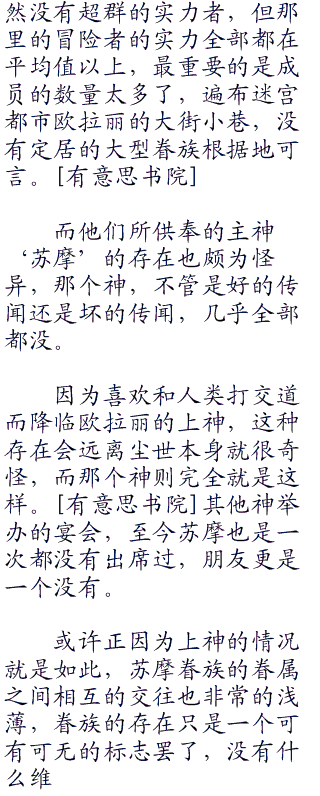 然没有超群的实力者，但那
里的冒险者的实力全部都在
平均值以上，最重要的是成
员的数量太多了，遍布迷宫
都市欧拉丽的大街小巷，没
有定居的大型眷族根据地可
言。[有意思书院]
而他们所供奉的主神
‘苏摩’的存在也颇为怪
异，那个神，不管是好的传
闻还是坏的传闻，几乎全部
都没。
因为喜欢和人类打交道
而降临欧拉丽的上神，这种
存在会远离尘世本身就很奇
怪，而那个神则完全就是这
样。[有意思书院]其他神举
办的宴会，至今苏摩也是一
次都没有出席过，朋友更是
一个没有。
或许正因为上神的情况
就是如此，苏摩眷族的眷属
之间相互的交往也非常的浅
薄，眷族的存在只是一个可
有可无的标志罢了，没有什
么维